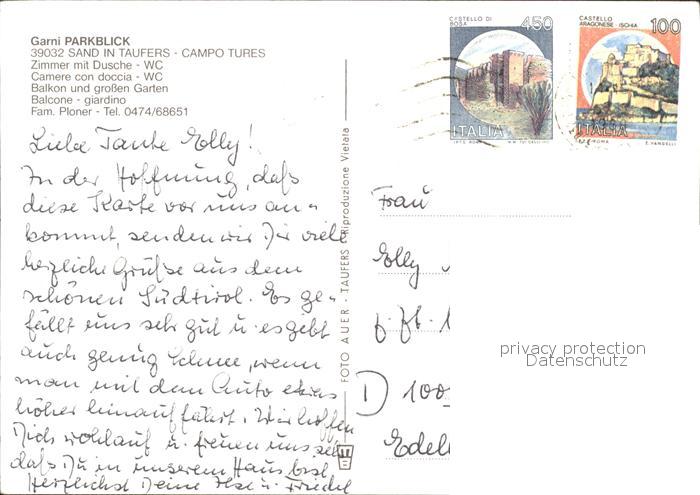 Garni PARKBLICK
39032 SAND IN TAUFERS - CAMPO TURES
Zimmer mit Dusche - WC
Camere con doccia - WC
Balkon und großen Garten
Balcone - giardino
Fam. Ploner - Tel. 0474/68651
Liebe Tante Elly!
In der Hoffnung, daß
diese Karte vor uns an-
kommt, senden wir Dir viele
herzliche Grüße aus dem
schönen Südtirol. Es ge-
fällt uns sehr gut u. es gibt
auch genug Schnee, wenn
man mit dem Auto etwas
höher hinauf fährt. Wir hoffen
Dich wohlauf u. freuen uns sehr
daß Du in unserem Haus bist
Herzlichst Deine Ilse u. Friedel
FOTO AUER - TAUFERS Riproduzione Vietata
CASTELLO DI
BOSA
450
ITALIA
CASTELLO
ARAGONESE - ISCHIA
100
ITALIA
I.P.Z.S. ROMA
E. VANGELLI
Frau
Elly
z. Zt.
D 100
Edel
privacy protection
Datenschutz